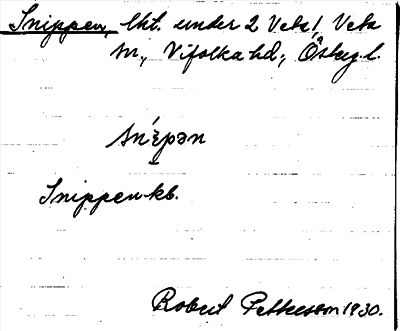 Snippen, lht. under 2 Veta, Veta
sn., Vifolka hd., Östg. l.
snípən
Snippen kb.
Robert Pettersson 1930.